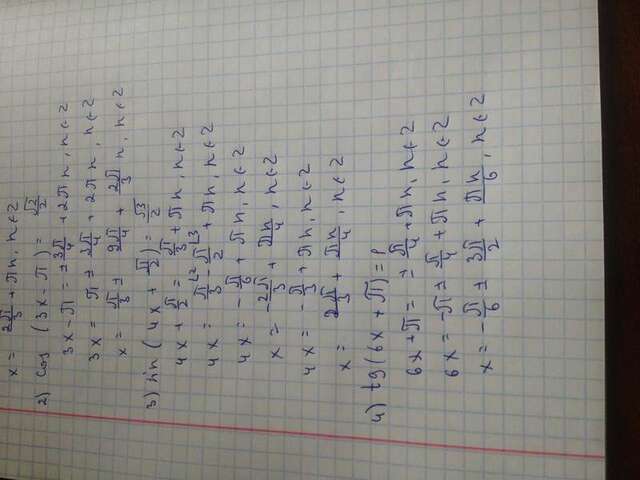 x = 2π/3 + πn, n ∈ Z
2) cos (3x - π) = √2/2
3x - π = ± 3π/4 + 2πn, n ∈ Z
3x = π ± 3π/4 + 2πn, n ∈ Z
x = π/3 ± 9π/4 + 2π/3 n, n ∈ Z
3) sin (4x + π/2) = √3/2
4x + π/2 = π/3 + πn, n ∈ Z
4x = π/3 ⌊2 - π/2 ⌊3 + πn, n ∈ Z
4x = - π/6 + πn, n ∈ Z
x = - 2π/3 + πn/4, n ∈ Z
4x = - π/3 + πn, n ∈ Z
x = 2π/3 + πn/4, n ∈ Z
4) tg (6x + π) = 1
6x + π = ± π/4 + πn, n ∈ Z
6x = -π ± π/4 + πn, n ∈ Z
x = - π/6 ± 3π/2 + πn/6, n ∈ Z